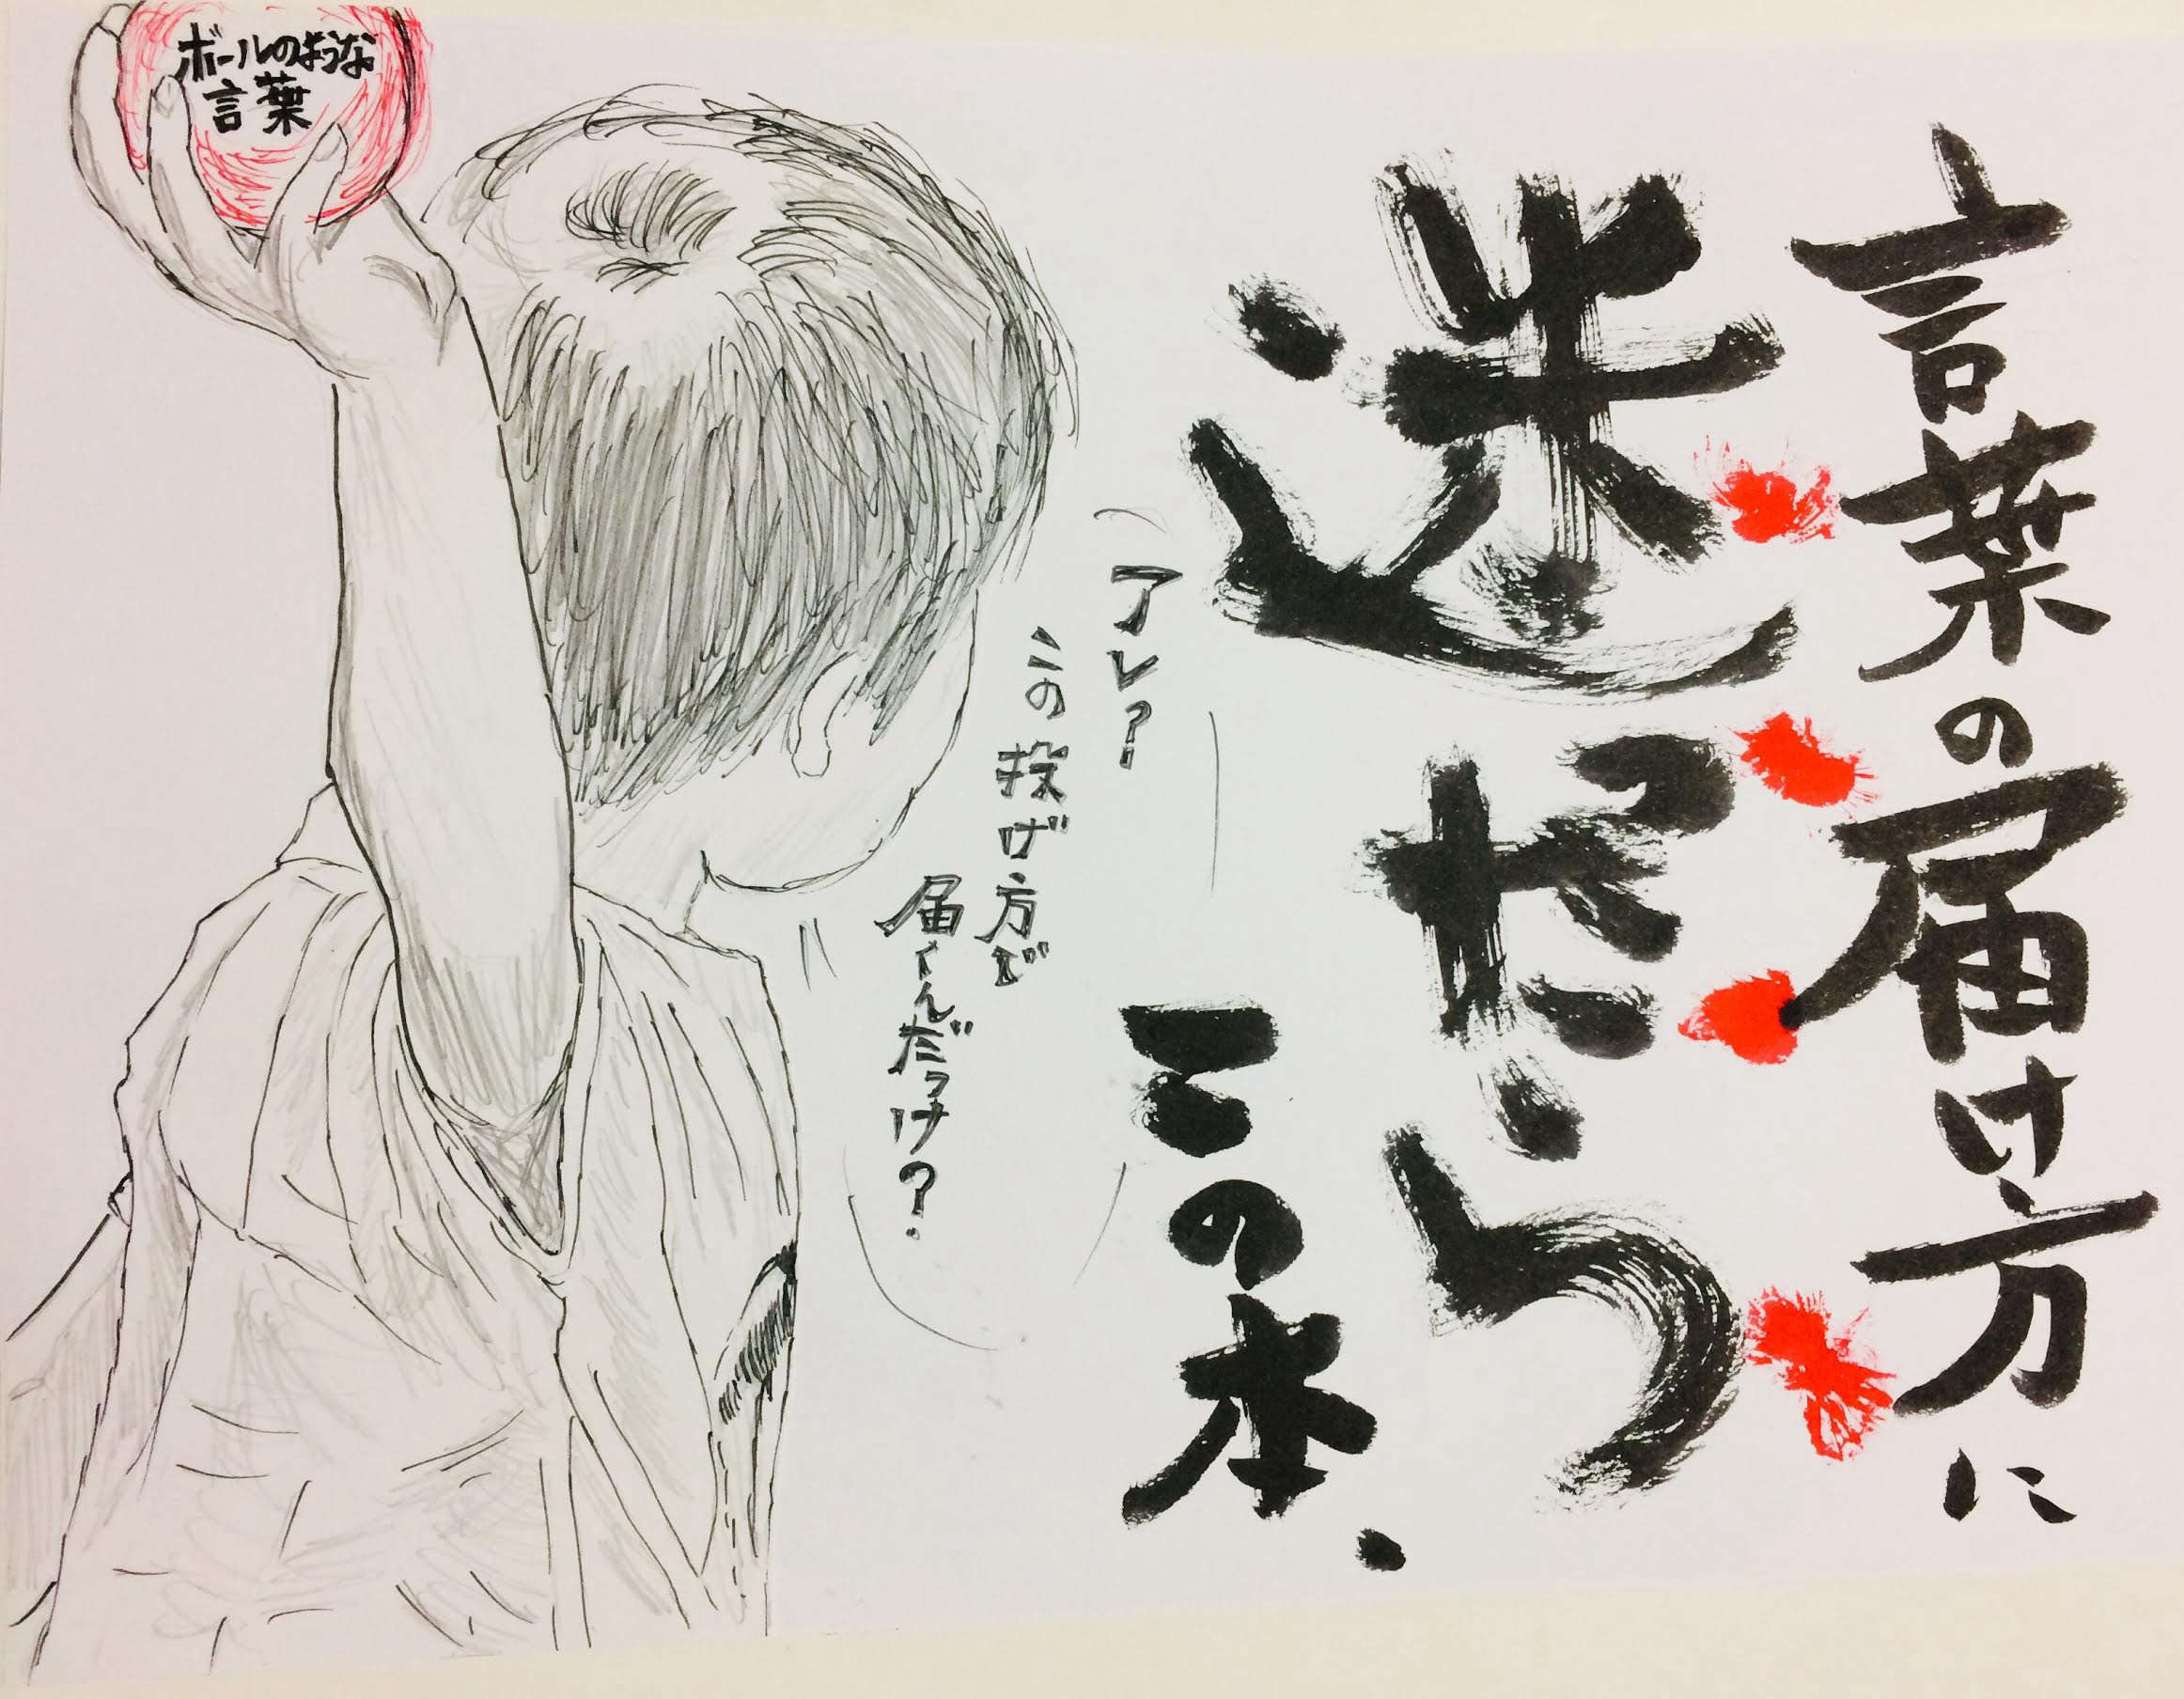 言葉の届け方に
迷ったら
この本、
アレ?
この投げ方で
届くんだっけ?
ボールのような
言葉